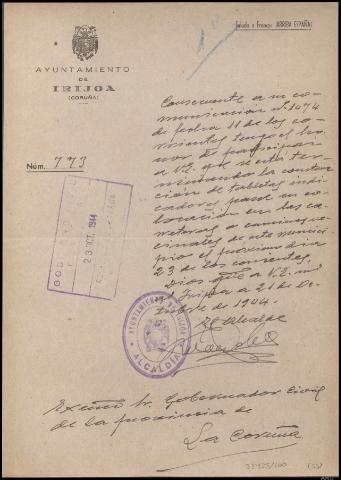 Saludo a Franco: ¡ARRIBA ESPAÑA!
AYUNTAMIENTO
DE
IRIJOA
(CORUÑA)
Núm. 773
Consecuente a su co-
municación nº 1474
de fecha 11 de los co-
rrientes tengo el ho-
nor de participar
a V.E. que se está ter-
minando la construc-
ción de tabletas indi-
cadoras para su co-
locación en las ca-
rreteras y caminos ve-
cinales de este munici-
pio el próximo dia
23 de los corrientes.
Dios gue a V.E. ms
as Irijoa a 21 de Oc-
tubre de 1944.
El Alcalde
23 OCT. 1944
AYUNTAMIENTO DE IRIJOA
ALCALDÍA
Excmo Sr. Gobernador Civil
de la provincia de
La Coruña